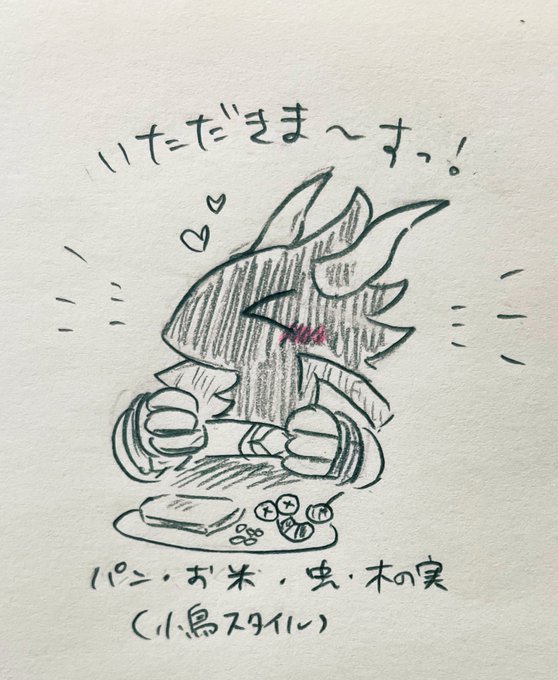 いただきま〜すっ!
パン・お米・虫・木の実
(小鳥スタイル)